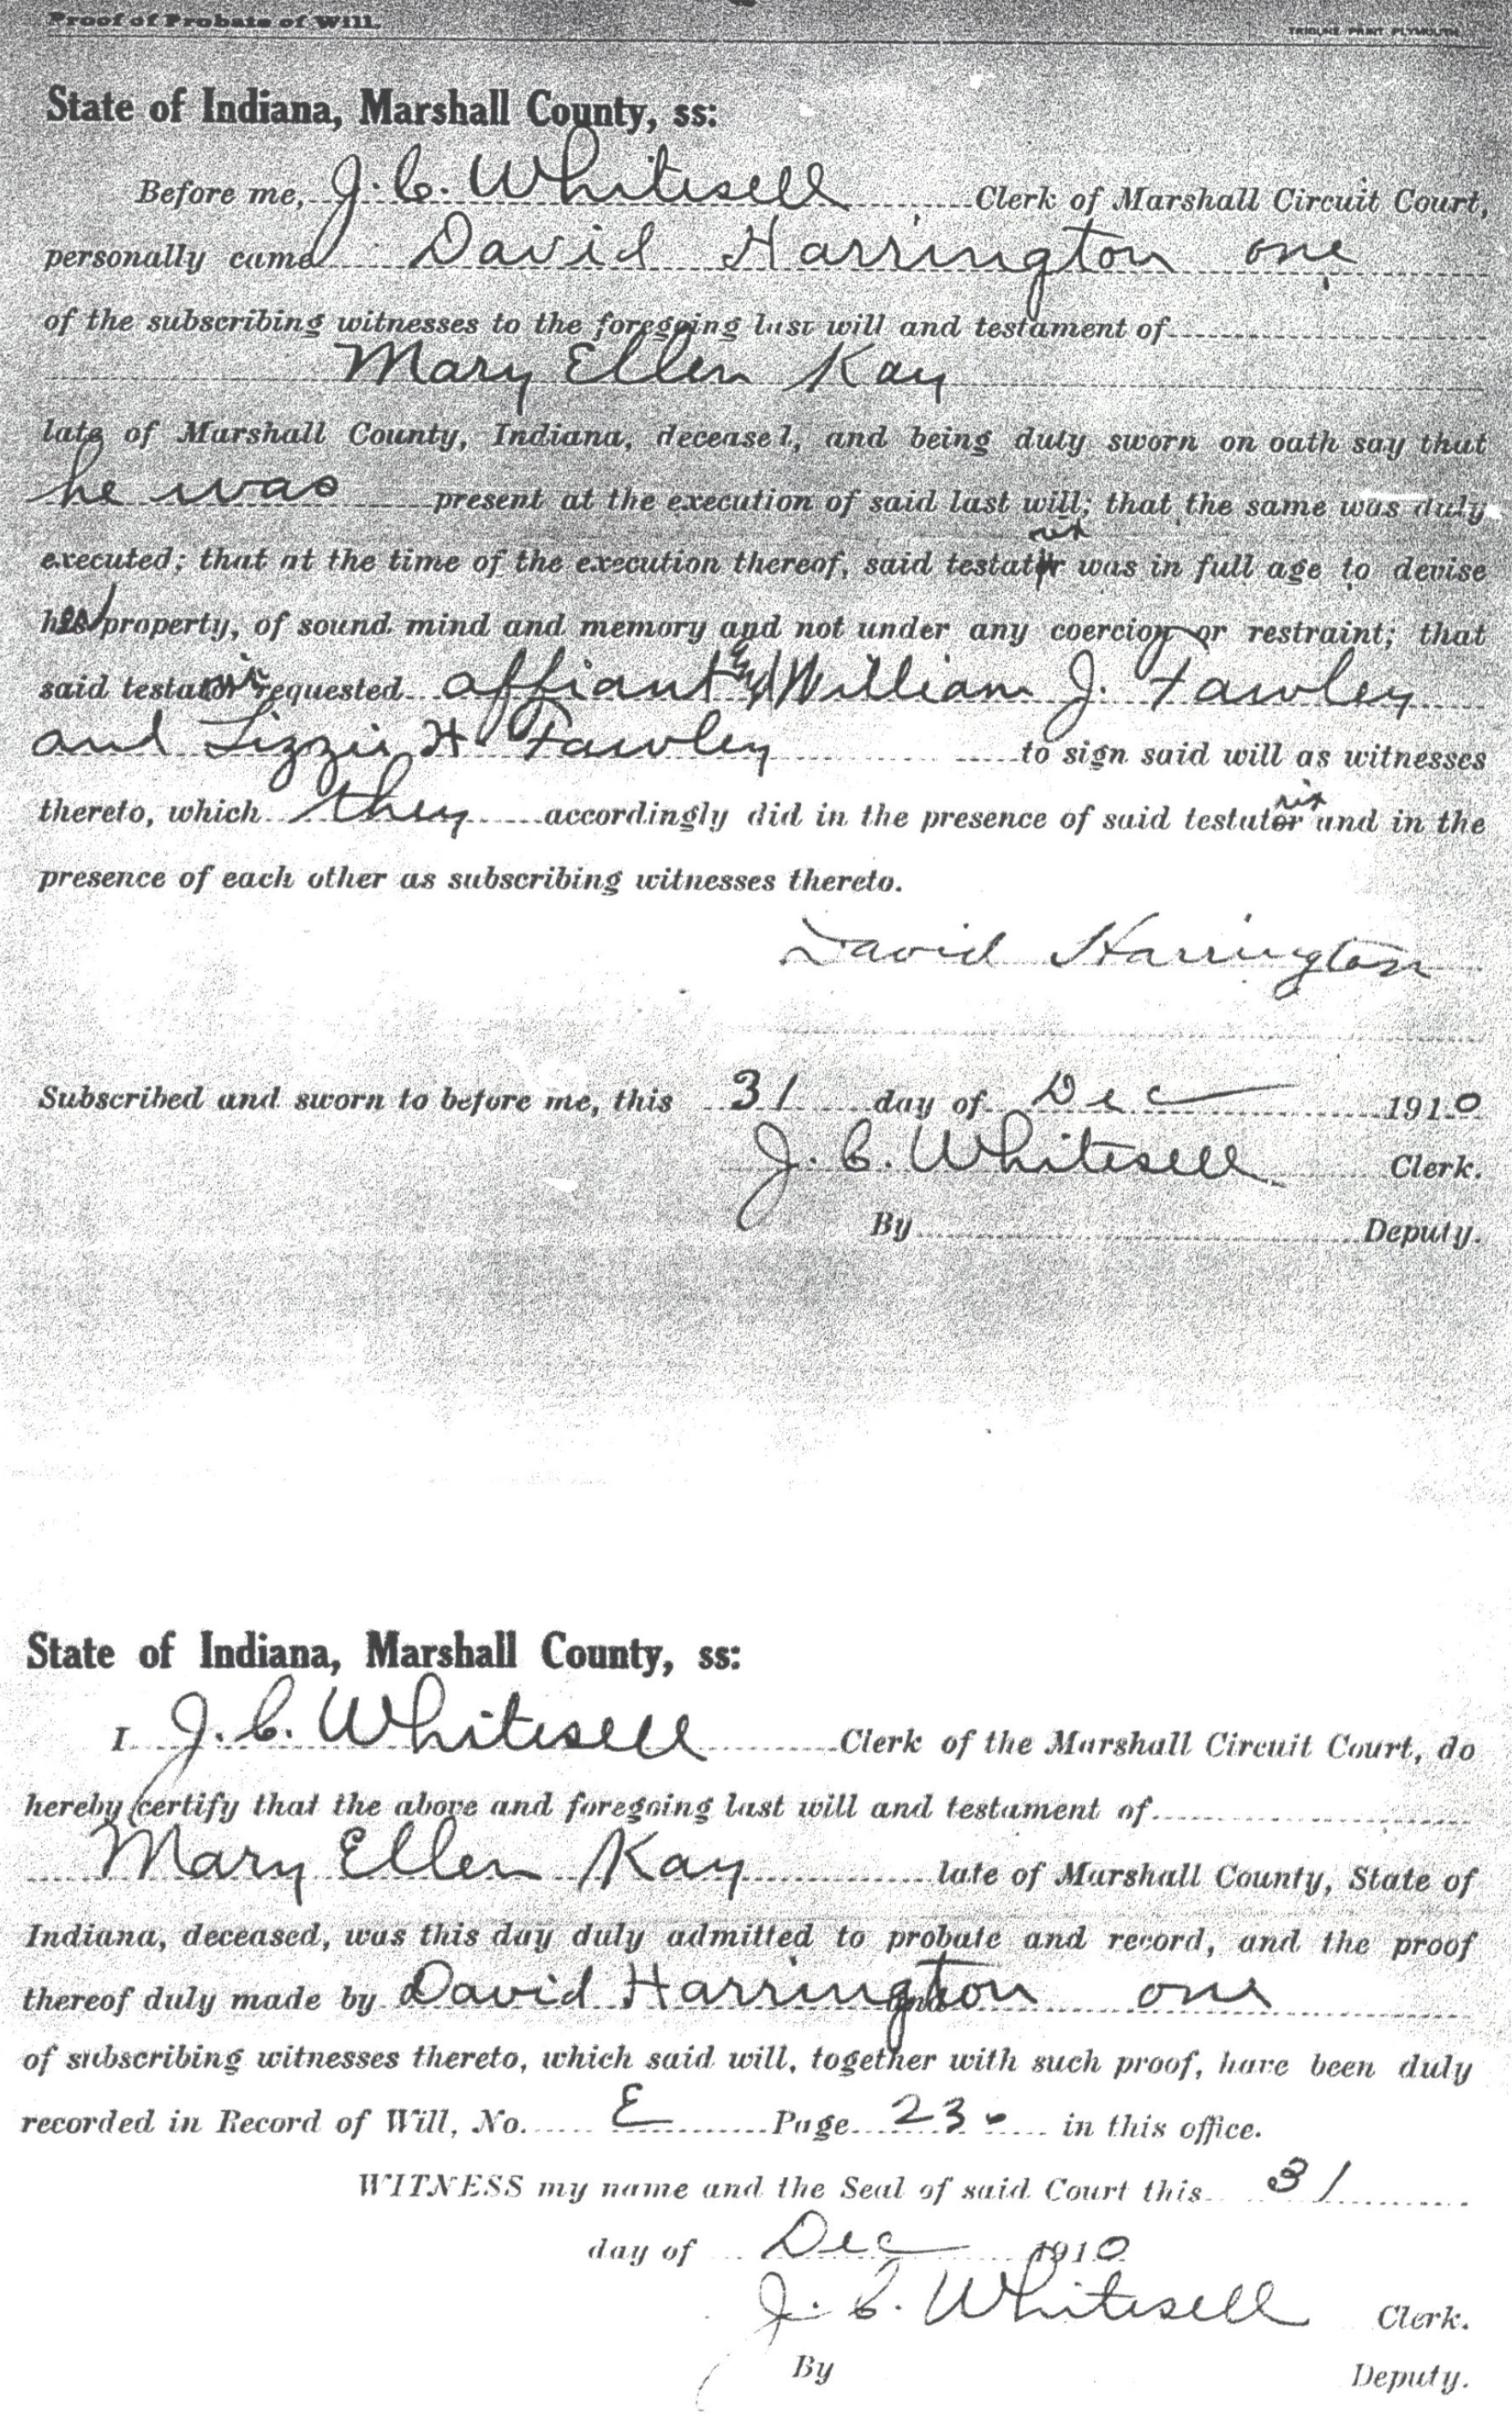 Proof of Probate of Will.
TRIBUNE PRINT PLYMOUTH
State of Indiana, Marshall County, ss:
Before me, J. C. Whitesell Clerk of Marshall Circuit Court,
personally came David Harrington one
of the subscribing witnesses to the foregoing last will and testament of
Mary Ellen Kay
late of Marshall County, Indiana, deceased, and being duty sworn on oath say that
he was present at the execution of said last will; that the same was duly
executed; that at the time of the execution thereof, said testatrix was in full age to devise
her property, of sound mind and memory and not under any coercion or restraint; that
said testatrix requested affiant and William J. Fawley
and Lizzie H. Fawley to sign said will as witnesses
thereto, which they accordingly did in the presence of said testatrix and in the
presence of each other as subscribing witnesses thereto.
David Harrington
Subscribed and sworn to before me, this 31 day of Dec 1910
J. C. Whitesell Clerk.
By Deputy.
State of Indiana, Marshall County, ss:
I J. C. Whitesell Clerk of the Marshall Circuit Court, do
hereby certify that the above and foregoing last will and testament of
Mary Ellen Kay late of Marshall County, State of
Indiana, deceased, was this day duly admitted to probate and record, and the proof
thereof duly made by David Harrington one
of subscribing witnesses thereto, which said will, together with such proof, have been duly
recorded in Record of Will, No. E Page in this office.
WITNESS my name and the Seal of said Court this 31
day of Dec 1910
J. C. Whitesell Clerk.
By Deputy.